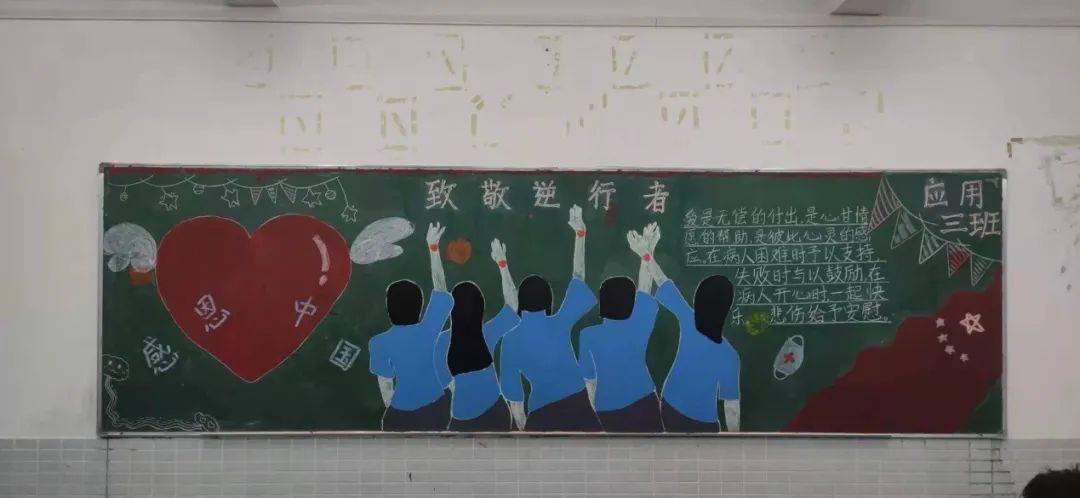 致敬逆行者
感恩中国
爱是无偿的付出,是心甘情
愿的帮助,是彼此心灵的感
应。在病人困难时予以支持
失败时与以鼓励在
病人开心时一起快
乐 悲伤给予安慰。
应用
三班